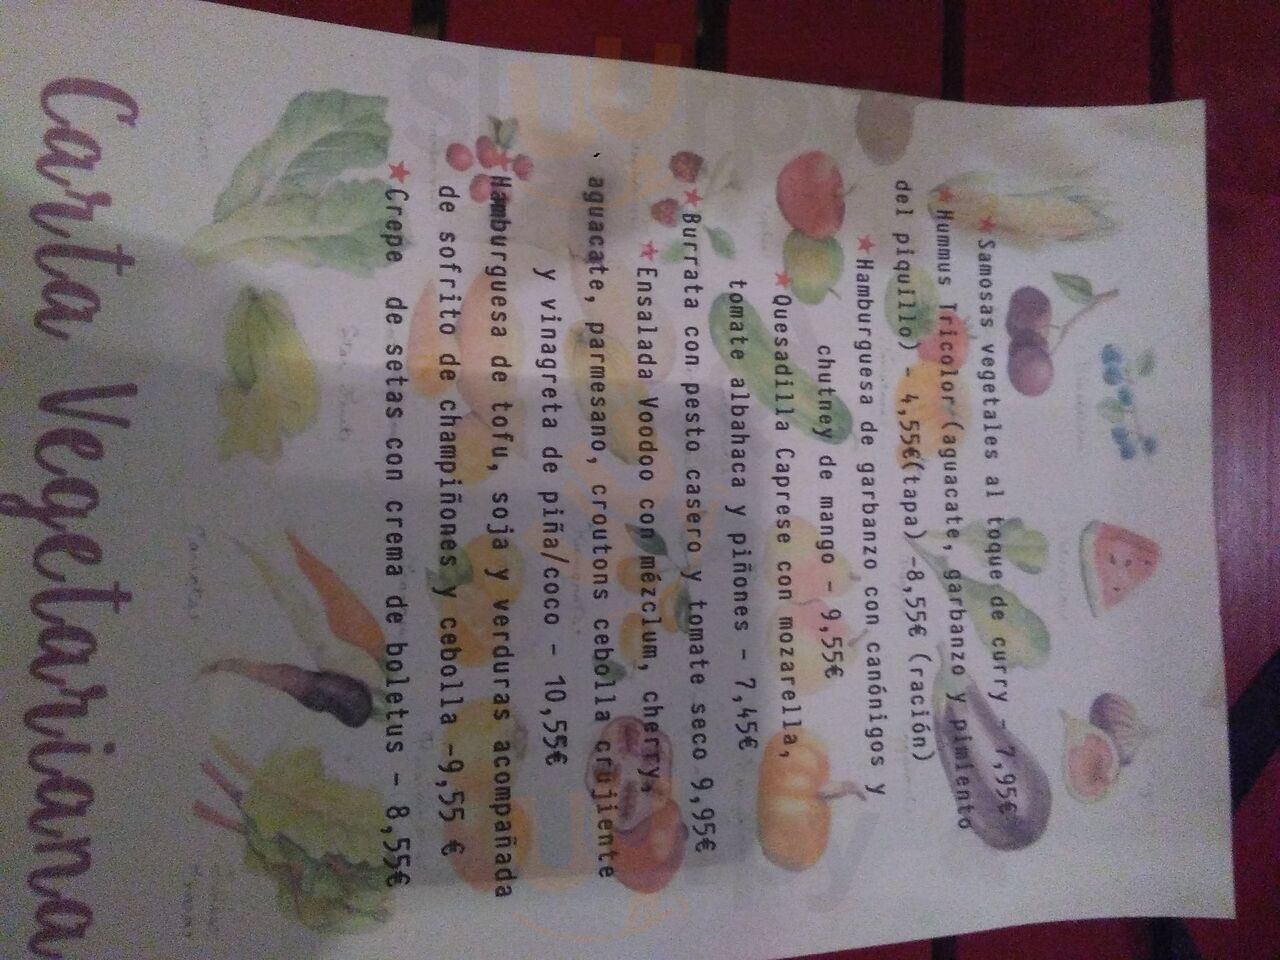 Samosas vegetales al toque de curry - 7,95€
Hummus Tricolor (aguacate, garbanzo y pimiento
del piquillo) - 4,55€(tapa) -8,55€ (ración)
Hamburguesa de garbanzo con canónigos y
chutney de mango - 9,55€
Quesadilla Caprese con mozarella,
tomate albahaca y piñones - 7,45€
Burrata con pesto casero y tomate seco 9,95€
Ensalada Voodoo con mézclum, cherry,
aguacate, parmesano, croutons cebolla crujiente
y vinagreta de piña/coco - 10,55€
Hamburguesa de tofu, soja y verduras acompañada
de sofrito de champiñones y cebolla -9,55 €
Crepe de setas con crema de boletus - 8,55€
Carta Vegetariana